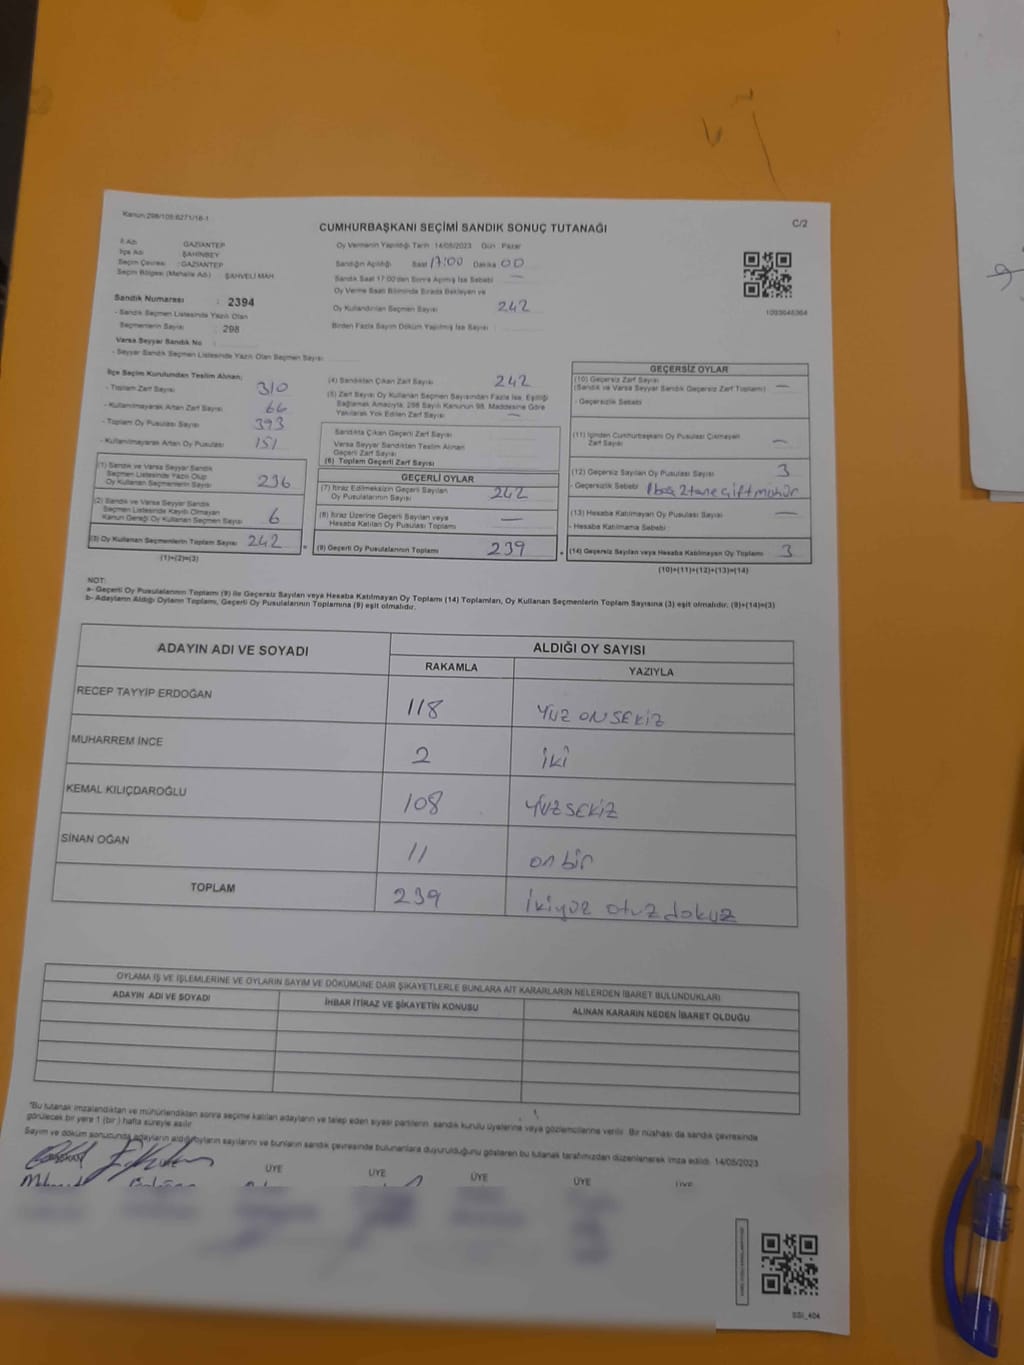 Kanun:298/105:6271/18-1
C/2
CUMHURBAŞKANI SEÇİMİ SANDIK SONUÇ TUTANAĞI
İl Adı : GAZİANTEP
İlçe Adı : ŞAHİNBEY
Seçim Çevresi : GAZİANTEP
Seçim Bölgesi (Mahalle Adı) : ŞAHVELİ MAH.
Sandık Numarası : 2394
- Sandık Seçmen Listesinde Yazılı Olan
Seçmenlerin Sayısı : 298
Varsa Seyyar Sandık No :
- Seyyar Sandık Seçmen Listesinde Yazılı Olan Seçmen Sayısı :
Oy Vermenin Yapıldığı Tarih : 14/05/2023 Gün : Pazar
Sandığın Açıldığı Saat 17:00 Dakika 00
Sandık Saat 17:00'den Sonra Açılmış İse Sebebi : —
Oy Verme Saati Bitiminde Sırada Bekleyen ve
Oy Kullandırılan Seçmen Sayısı : 242
Birden Fazla Sayım Döküm Yapılmış İse Sayısı :
1093646364
İlçe Seçim Kurulundan Teslim Alınan;
- Toplam Zarf Sayısı 310
- Kullanılmayarak Artan Zarf Sayısı : 66
- Toplam Oy Pusulası Sayısı 393
- Kullanılmayarak Artan Oy Pusulası : 151
(1) Sandık ve Varsa Seyyar Sandık
Seçmen Listesinde Yazılı Olup
Oy Kullanan Seçmenlerin Sayısı 236
(2) Sandık ve Varsa Seyyar Sandık
Seçmen Listesinde Kayıtlı Olmayan
Kanun Gereği Oy Kullanan Seçmen Sayısı 6
(3) Oy Kullanan Seçmenlerin Toplam Sayısı 242
(1)+(2)=(3)
(4) Sandıktan Çıkan Zarf Sayısı : 242
(5) Zarf Sayısı Oy Kullanan Seçmen Sayısından Fazla İse, Eşitliği
Sağlamak Amacıyla, 298 Sayılı Kanunun 98. Maddesine Göre
Yakılarak Yok Edilen Zarf Sayısı : —
Sandıkta Çıkan Geçerli Zarf Sayısı :
Varsa Seyyar Sandıktan Teslim Alınan
Geçerli Zarf Sayısı
(6) Toplam Geçerli Zarf Sayısı
GEÇERLİ OYLAR
(7) İtiraz Edilmeksizin Geçerli Sayılan
Oy Pusulalarının Sayısı : 242
(8) İtiraz Üzerine Geçerli Sayılan veya
Hesaba Katılan Oy Pusulası Toplamı —
(9) Geçerli Oy Pusulalarının Toplamı 239
GEÇERSİZ OYLAR
(10) Geçersiz Zarf Sayısı
(Sandık ve Varsa Seyyar Sandık Geçersiz Zarf Toplamı) : —
- Geçersizlik Sebebi :
(11) İçinden Cumhurbaşkanı Oy Pusulası Çıkmayan
Zarf Sayısı : —
(12) Geçersiz Sayılan Oy Pusulası Sayısı : 3
- Geçersizlik Sebebi : 1 boş 2 tane çift mühür
(13) Hesaba Katılmayan Oy Pusulası Sayısı : —
- Hesaba Katılmama Sebebi :
(14) Geçersiz Sayılan veya Hesaba Katılmayan Oy Toplamı : 3
(10)+(11)+(12)+(13)=(14)
NOT:
a- Geçerli Oy Pusulalarının Toplamı (9) ile Geçersiz Sayılan veya Hesaba Katılmayan Oy Toplamı (14) Toplamları, Oy Kullanan Seçmenlerin Toplam Sayısına (3) eşit olmalıdır. (9)+(14)=(3)
b- Adayların Aldığı Oyların Toplamı, Geçerli Oy Pusulalarının Toplamına (9) eşit olmalıdır.
ADAYIN ADI VE SOYADI
ALDIĞI OY SAYISI
RAKAMLA YAZIYLA
RECEP TAYYİP ERDOĞAN 118 YÜZ ON SEKİZ
MUHARREM İNCE 2 iki
KEMAL KILIÇDAROĞLU 108 YÜZ SEKİZ
SİNAN OĞAN 11 on bir
TOPLAM 239 ikiyüz otuz dokuz
OYLAMA İŞ VE İŞLEMLERİNE VE OYLARIN SAYIM VE DÖKÜMÜNE DAİR ŞİKAYETLERLE BUNLARA AİT KARARLARIN NELERDEN İBARET BULUNDUKLARI
ADAYIN ADI VE SOYADI İHBAR İTİRAZ VE ŞİKAYETİN KONUSU ALINAN KARARIN NEDEN İBARET OLDUĞU
"Bu tutanak imzalandıktan ve mühürlendikten sonra seçime katılan adayların ve talep eden siyasi partilerin sandık kurulu üyelerine veya gözlemcilerine verilir. Bir nüshası da sandık çevresinde
görülecek bir yere 1 (bir) hafta süreyle asılır.
Sayım ve döküm sonucunda adayların aldığı oyların sayılarını ve bunların sandık çevresinde bulunanlara duyurulduğunu gösteren bu tutanak tarafımızdan düzenlenerek imza edildi. 14/05/2023
BAŞKAN ÜYE ÜYE ÜYE ÜYE ÜYE
SSI_404